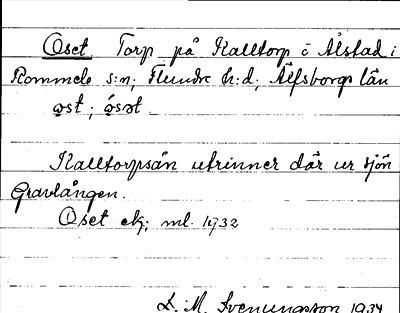 Oset Torp på Kalltorp i Ålstad i
Rommele s:n; Flundre h:d; Älfsborgs län
ost; óset
Kalltorpsån utrinner där ur sjön
Gravlången.
Oset ek; ml. 1932
D. M. Svenungsson 1934